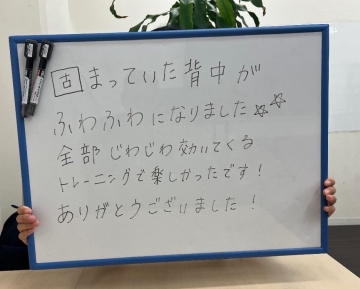 固まっていた背中が
ふわふわになりました☆☆
全部じわじわ効いてくる
トレーニングで楽しかったです!
ありがとうございました!